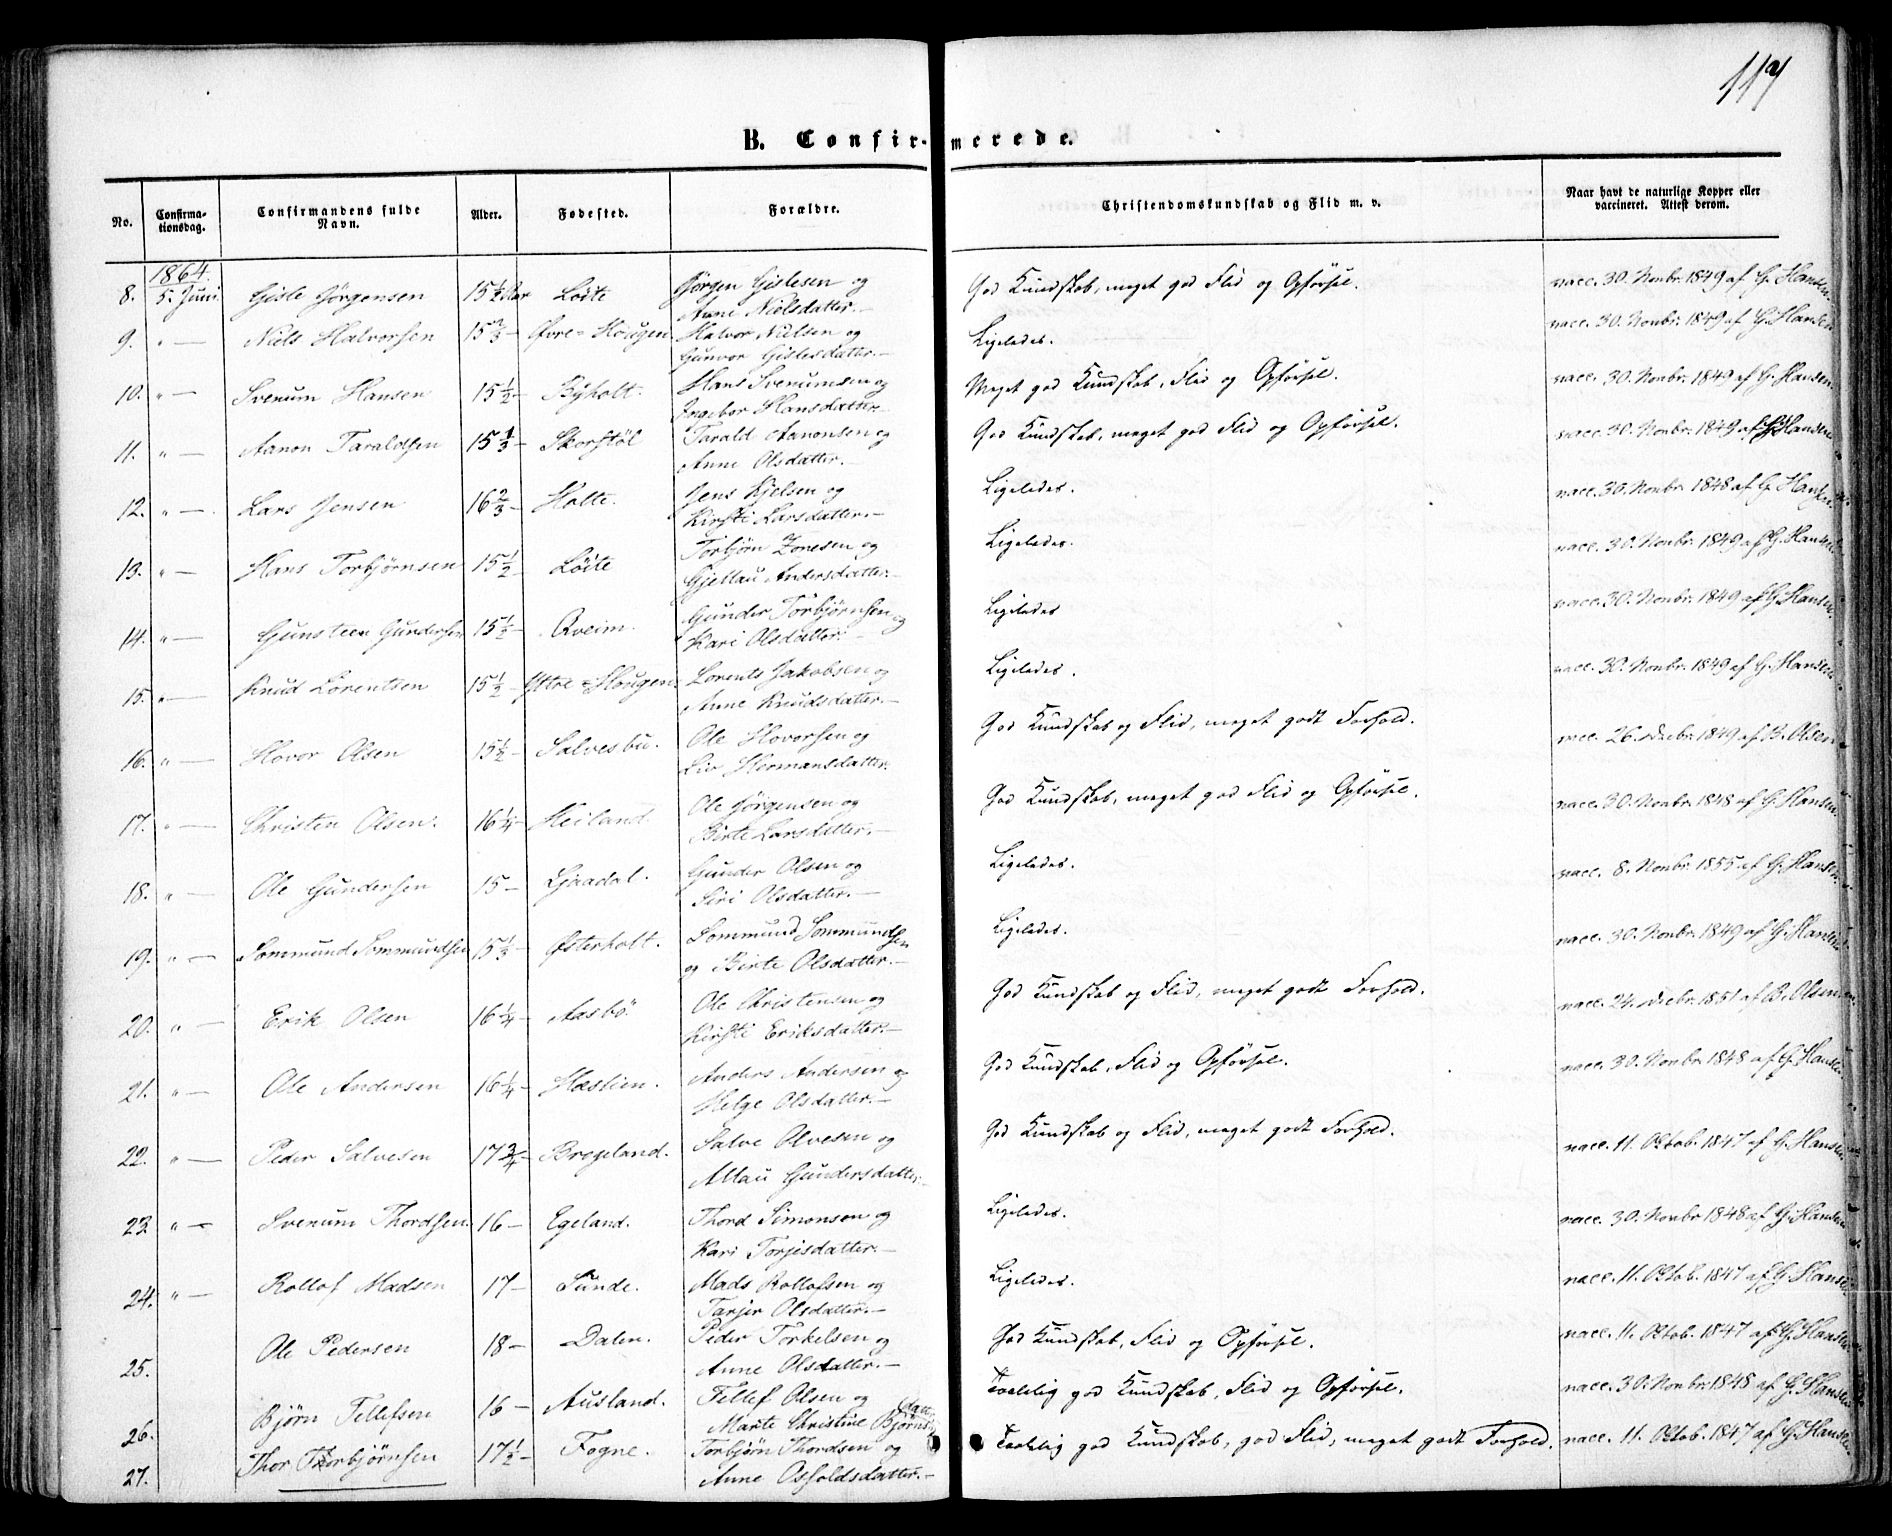 117
B. Confirmerede.
No. Confirmationsdag. Confirmandens fulde Navn. Alder. Fødested. Forældre. Christendomskundskab og Flid m. v. Naar havt de naturlige Kopper eller vaccineret. Attest derom.
1864.
8. 5. Juni Gisle Jørgensen 15 1/2 Aar Löite Jørgen Gislesen og Anne Nielsdatter.— God Kundskab, meget god Flid og Opförsel. vacc. 30. Novbr. 1849 af G. Hansen.
9. " — Niels Halvorsen 15 2/3 — Øvre-Hougen Halvor Nielsen og Gunvor Gislesdatter.— Ligeledes. vacc. 30. Novbr. 1849 af G. Hansen
10. " — Svenum Hansen 15 1/2 — Byholt. Hans Svenumsen og Ingebor Hansdatter.— Meget god Kundskab, Flid og Opförsel. vacc. 30. Novbr. 1849 af G. Hansen.
11. " — Aanon Taraldsen 15 1/3 — Skorstöl Tarald Aanonsen og Anne Olsdatter.— God Kundskab, meget god Flid og Opförsel. vacc. 30. Novbr. 1849 af G. Hansen
12. " — Lars Jensen 16 2/3 — Holte. Jens Kjelsen og Kirsti Larsdatter.— Ligeledes. vacc. 30. Novbr. 1848 af G. Hansen.
13. " — Hans Torbjørnsen 15 1/2 — Löite Torbjørn Zonesen og Gjellau Andersdatter.— Ligeledes. vacc. 30. Novbr. 1849 af G. Hansen
14. " — Gunsteen Gundersen 15 1/2 — Qveim. Gunder Torbjørnsen og Kari Olsdatter.— Ligeledes vacc. 30. Novbr. 1849 af G. Hansen.
15. " — Knud Lorentsen 15 1/2 — Yttre-Hougen. Lorents Jakobsen og Anne Knudsdatter.— Ligeledes. vacc. 30. Novbr. 1849 af G. Hansen
16. " — Hovor Olsen 15 1/2 — Salvesbu. Ole Hovorsen og Liv Hermansdatter. God Kundskab og Flid, meget godt Forhold. vacc. 26. Decbr. 1849 af B. Olsen
17. " — Christen Olsen. 16 1/4 — Heiland Ole Jørgensen og Birte Larsdatter.— God Kundskab, meget god Flid og Opförsel. vacc. 30. Novbr. 1848 af G. Hansen.
18. " — Ole Gundersen 15 — Ljaadal. Gunder Olsen og Siri Olsdatter.— Ligeledes. vacc. 8. Novbr. 1855 af G. Hansen.
19. " — Sommund Sommundsen 15 1/3 — Østerholt. Sommund Sommundsen og Birte Olsdatter.— Ligeledes. vacc. 30. Novbr. 1849 af G. Hansen
20. " — Erik Olsen 16 1/4 — Aasbö Ole Christensen og Kirsti Eriksdatter.— God Kundskab og Flid, meget godt Forhold. vacc. 24. Decbr. 1851 af B. Olsen
21. " — Ole Andersen 16 1/4 — Hæstien. Anders Andersen og Helge Olsdatter.— God Kundskab, Flid og Opförsel. vacc. 30. Novbr. 1848 af G. Hansen
22. " — Peder Salvesen 17 3/4 — Brogeland. Salve Olvesen og Allau Gundersdatter.— God Kundskab og Flid, meget godt Forhold. vacc. 11. Oktob. 1847 af G. Hansen
23. " — Svenum Thordsen. 16 — Egeland. Thord Simonsen og Kari Torjisdatter.— Ligeledes. vacc. 30. Novbr 1848 af G. Hansen
24. " — Rollof Madsen 17 — Sunde. Mads Rollofsen og Tarjer Olsdatter.— Ligeledes. vacc. 11. Oktob. 1847 af G. Hansen
25. Ole Pedersen 18 — Dalen. Peder Torkelsen og Anne Olsdatter.— God Kundskab, Flid og Opförsel. vacc. 11. Oktob. 1847 af G. Hansen
26. Bjørn Tellefsen 16 — Ausland. Tellef Olsen og Marte Christine Bjørnsdatter Taalelig god Kundskab, Flid og Opförsel. vacc. 30. Novbr. 1848 af G. Hansen
27. Thor Thorbjørnsen 17 1/2 — Fogne. Torbjørn Thordsen og Anne Osfoldsdatter.— Taalelig god Kundskab, god Flid, meget godt Forhold. vacc. 11. Oktob. 1847 af G. Hansen